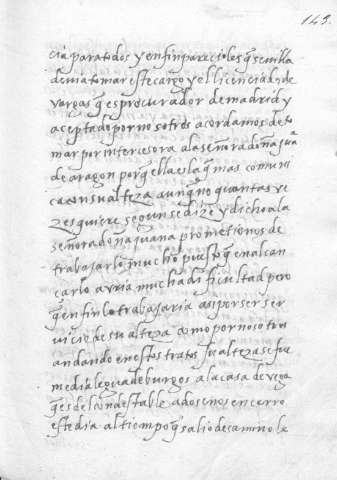 149.
cia para todos y en fin parecioles q̃ sevilla
devia tomar este cargo y el licenciado de
vargas q̃ es procurador de madrid y
aceptado por nosotros acordamos de to
mar por intercesora a la señora doña juª
de aragon porq̃ ella es la q̃ mas comuni
ca con su alteza aunq̃ no quantas ve
zes quiere segun se dize y dicho a la
señora doña juana prometionos de
trabajarlo mucho puesto q̃ en alcan
carlo avria mucha dificultad pero
q̃ en fin lo trabajaria asy por ser ser
vicio de su alteza como por nosotros
andando en estos tratos su alteza se fue
media legua de burgos a la casa de vega
q̃ es del condestable adó se nos encerro
este dia al tiempo q̃ salio de camino le